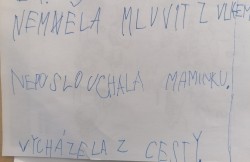 NEMNĚLA MLUVIT Z VLKEM
NEPOSLOUCHALA MAMINKU.
VYCHÁZELA Z CESTY.